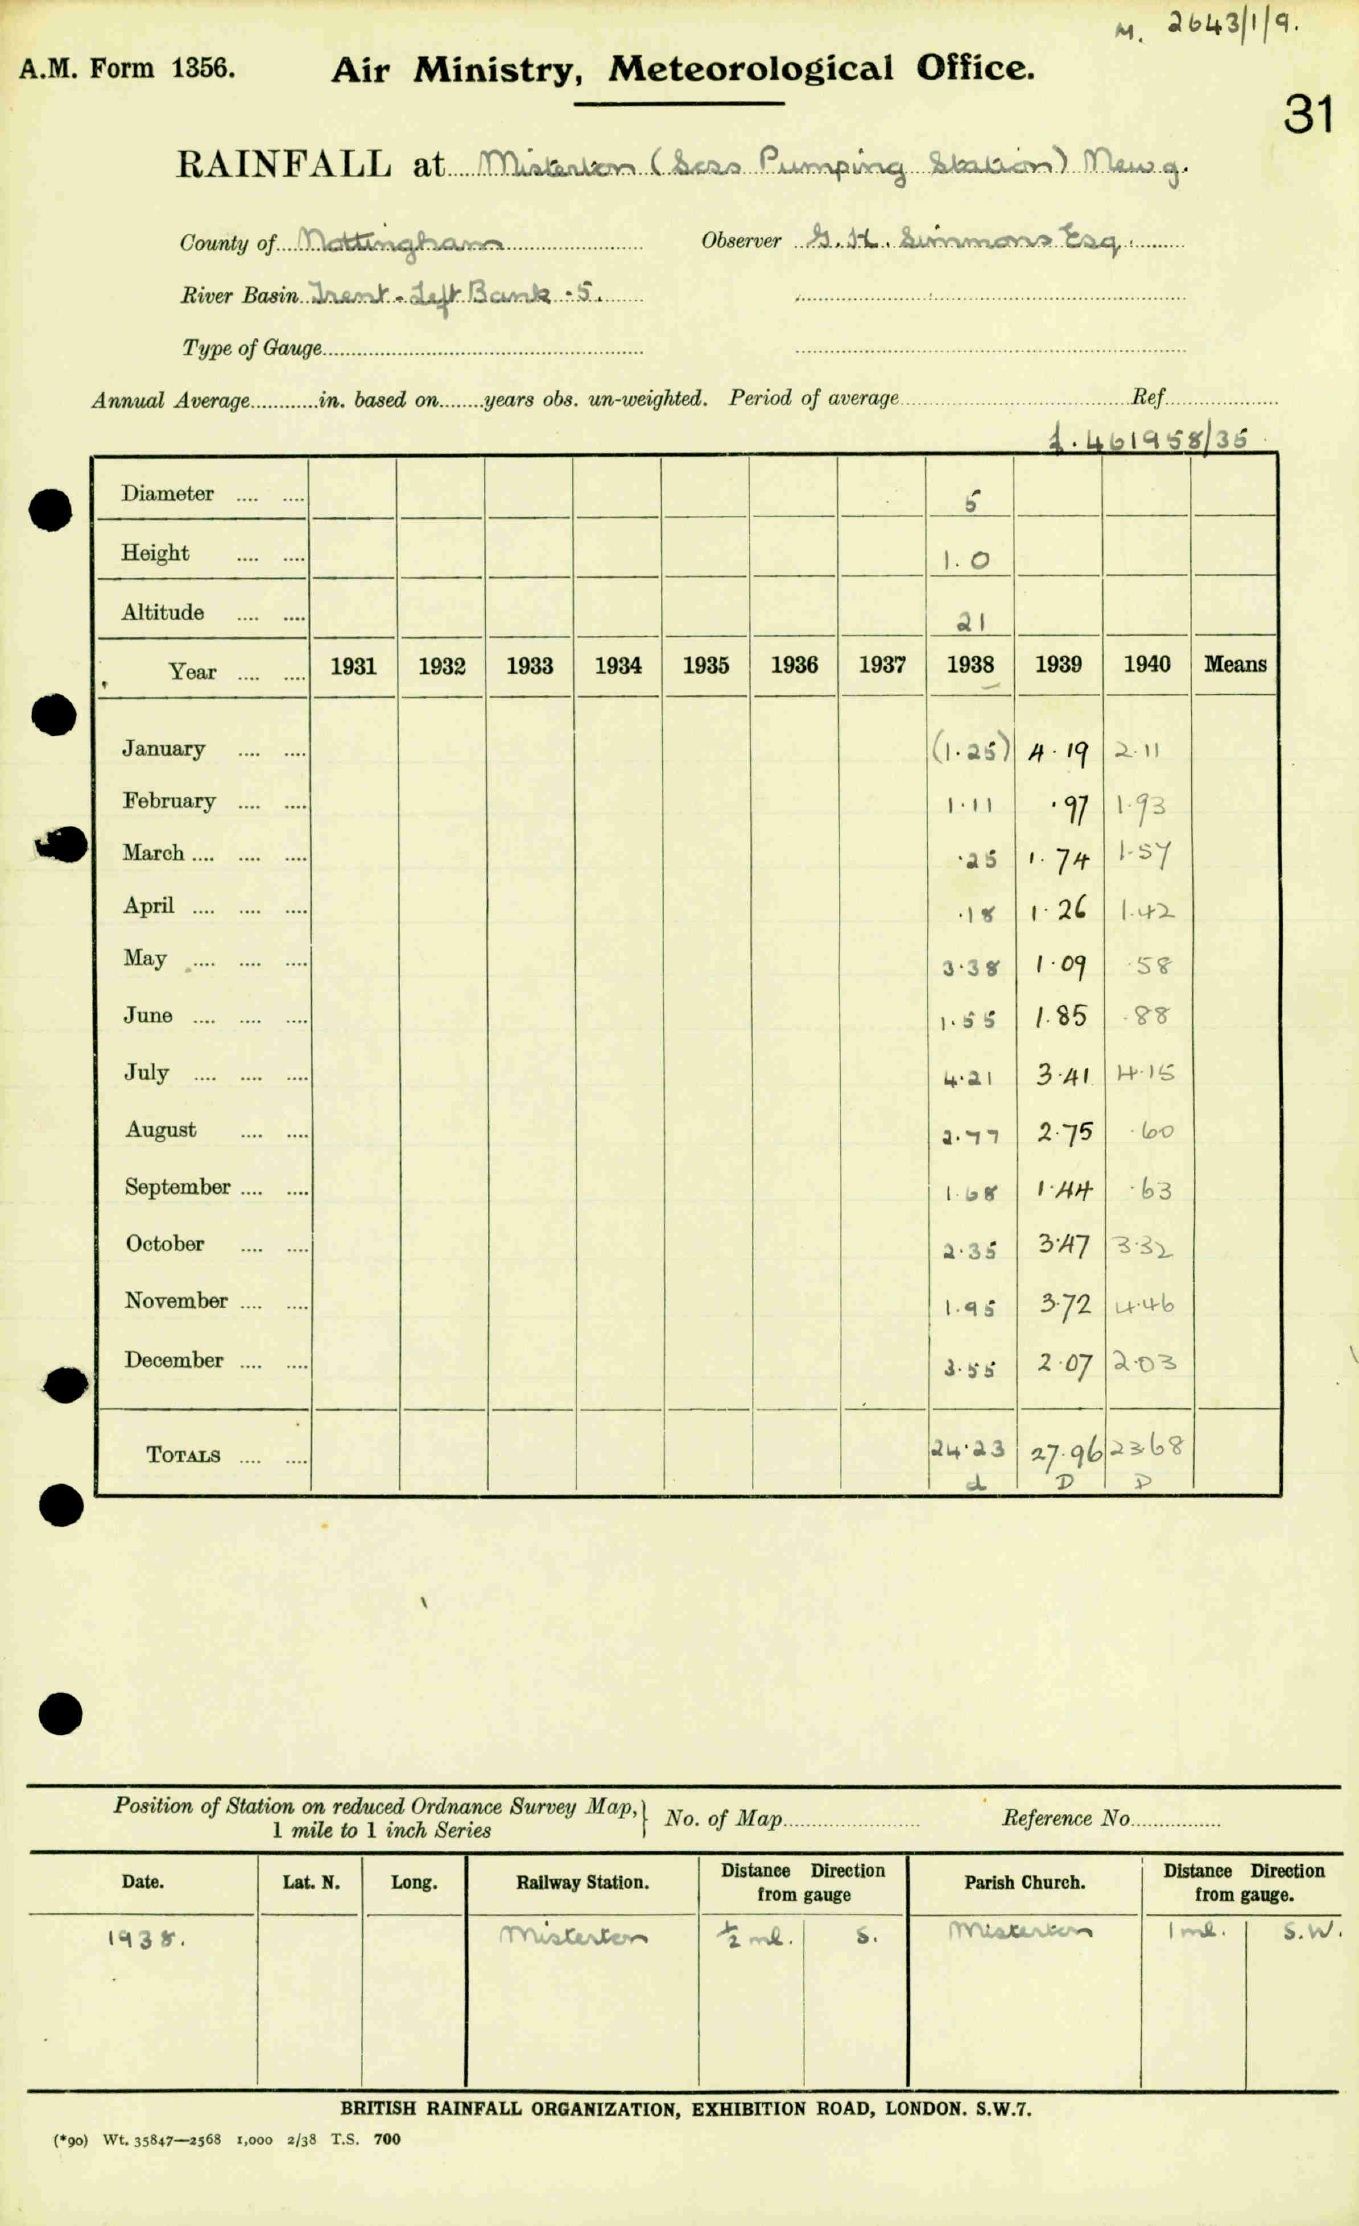 M. 2643/1/9.
A.M. Form 1356. Air Ministry, Meteorological Office.
31
RAINFALL at Misterton (Soss Pumping Station) New g.
County of Nottingham Observer G. H. Simmons Esq.
River Basin Trent - Left Bank - 5.
Type of Gauge
Annual Average in. based on years obs. un-weighted. Period of average Ref
f. 461958/35
Diameter 5
Height 1.0
Altitude 21
Year 1931 1932 1933 1934 1935 1936 1937 1938 1939 1940 Means
January (1.25) 4.19 2.11
February 1.11 .97 1.93
March .25 1.74 1.57
April .18 1.26 1.42
May 3.38 1.09 .58
June 1.55 1.85 .88
July 4.21 3.41 4.15
August 2.77 2.75 .60
September 1.68 1.44 .63
October 2.35 3.47 3.32
November 1.95 3.72 4.46
December 3.55 2.07 2.03
TOTALS 24.23 27.96 23.68
d D D
Position of Station on reduced Ordnance Survey Map, } No. of Map Reference No
1 mile to 1 inch Series
Date. Lat. N. Long. Railway Station. Distance Direction from gauge Parish Church. Distance Direction from gauge.
1938. Misterton ½ ml. S. Misterton 1 ml. S.W.
BRITISH RAINFALL ORGANIZATION, EXHIBITION ROAD, LONDON. S.W.7.
(*90) Wt. 35847—2568 1,000 2/38 T.S. 700